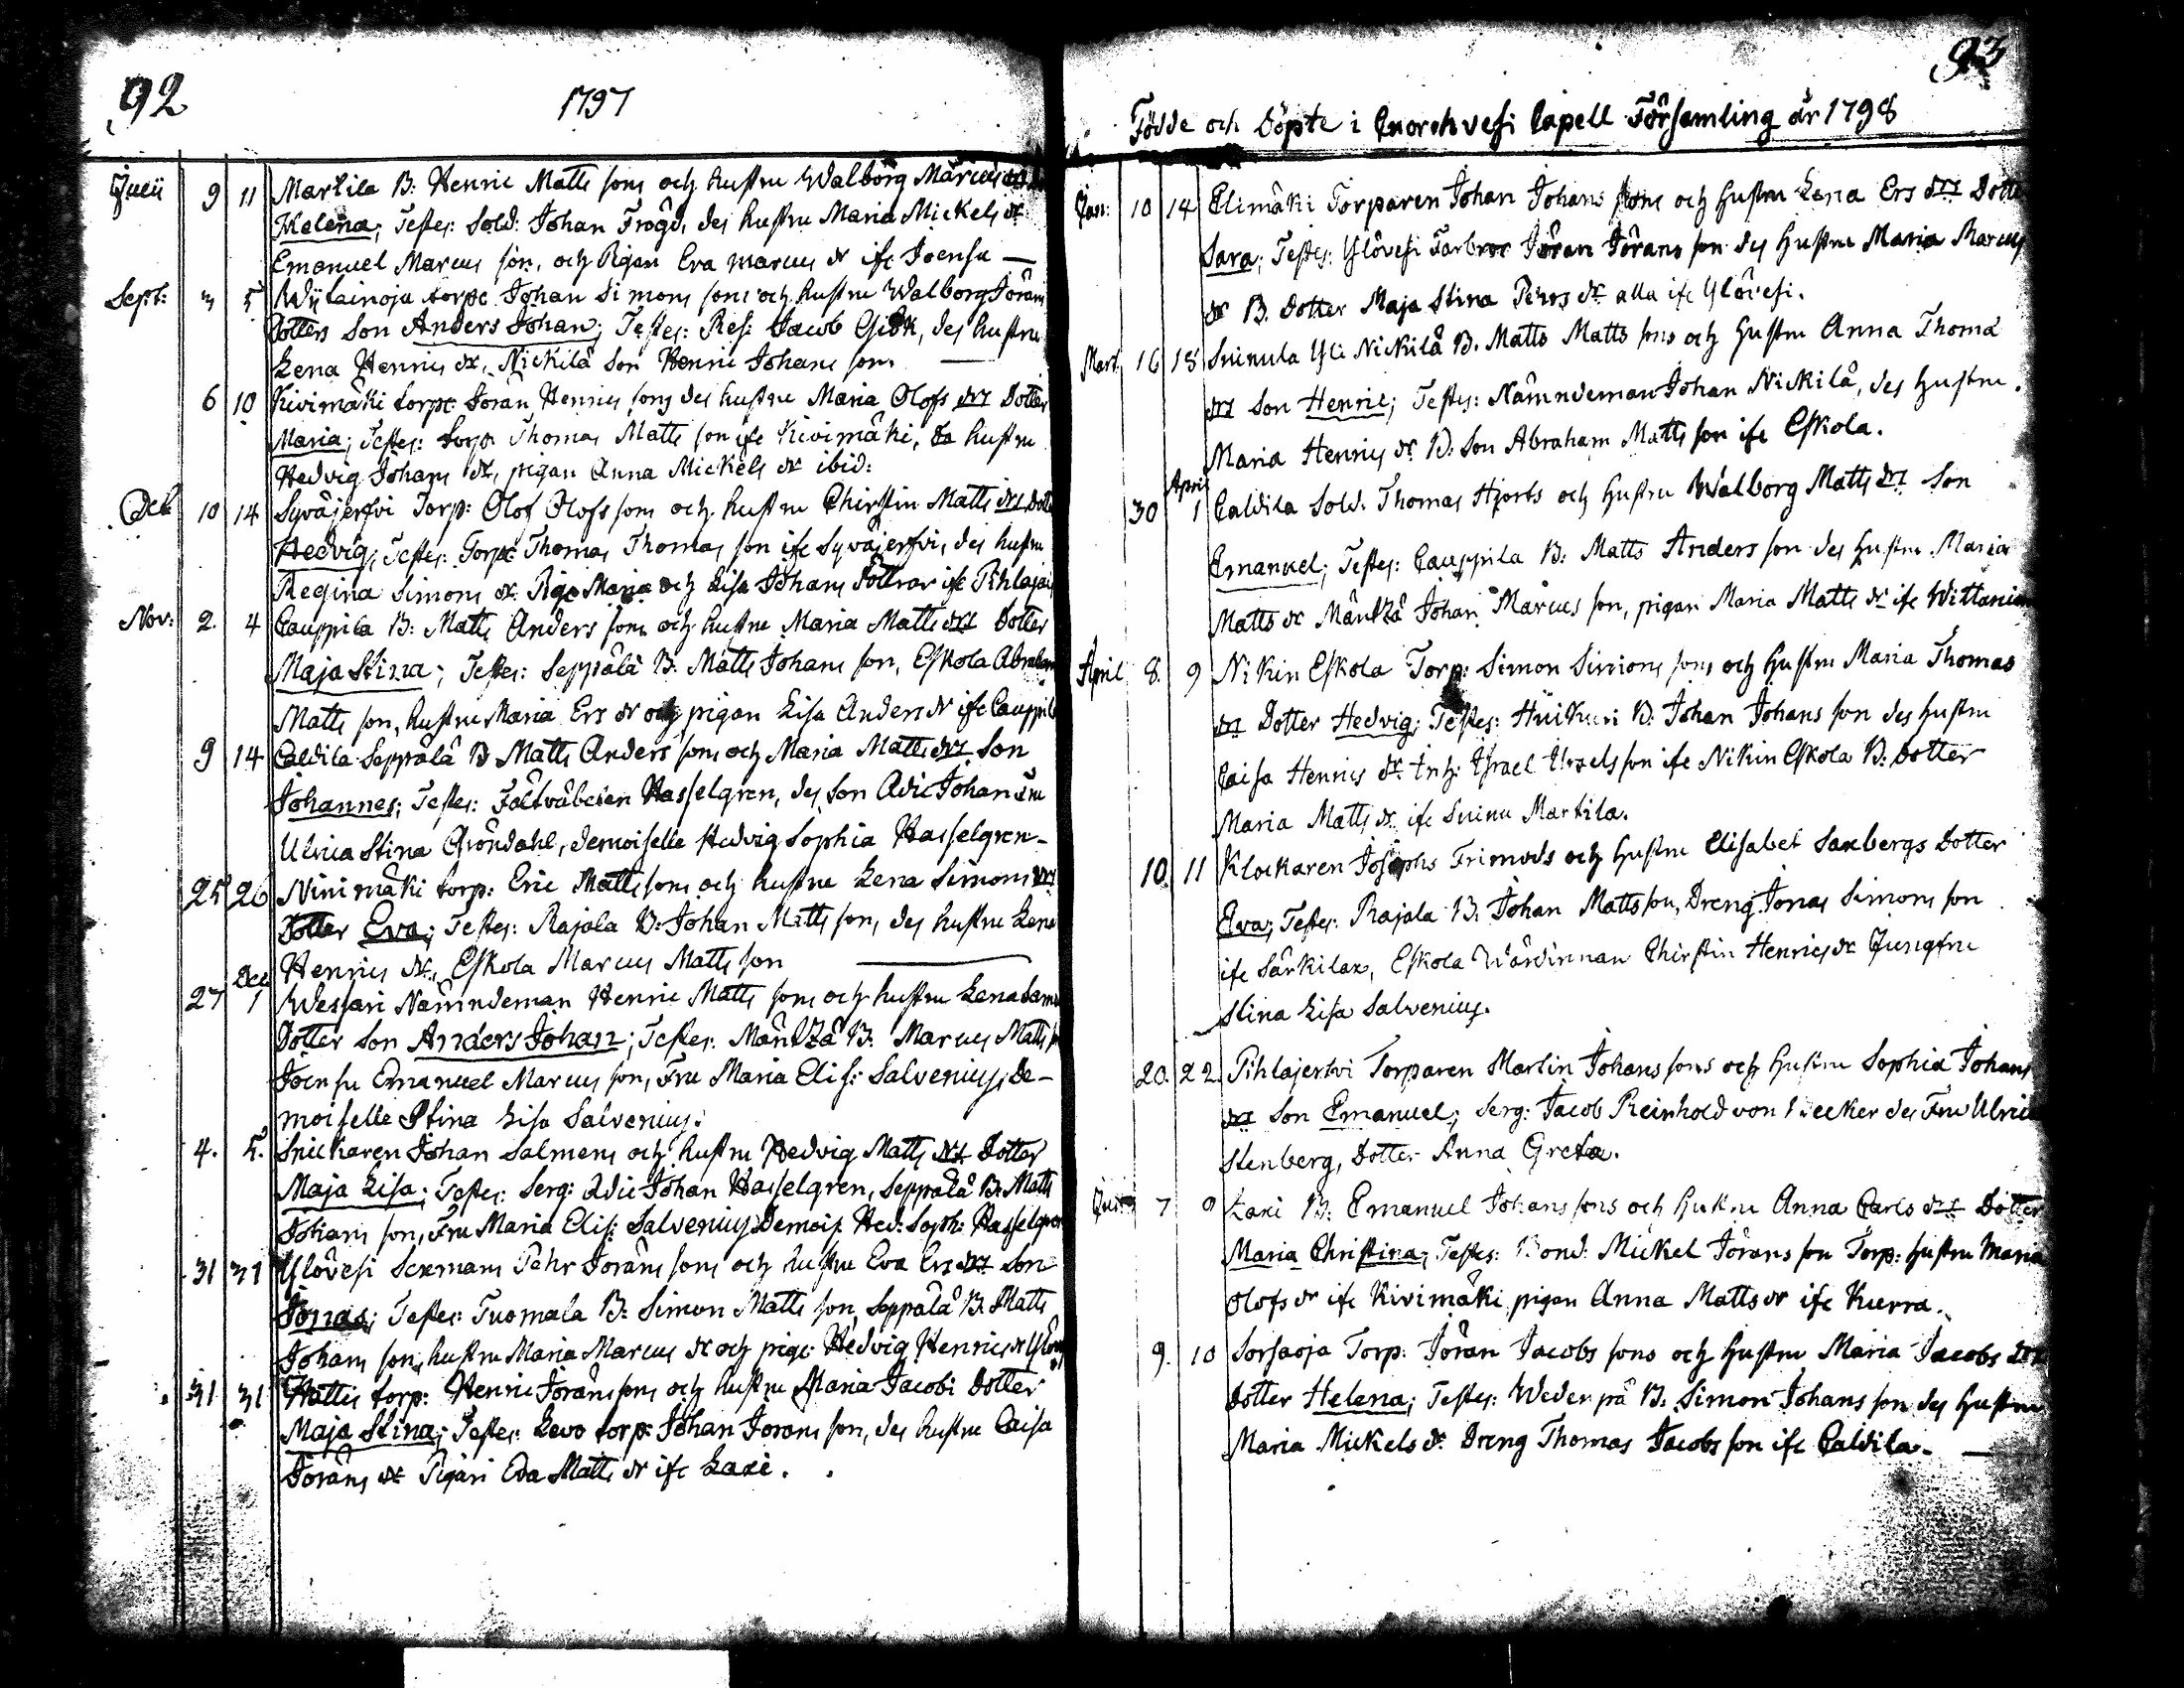 92
1797
Julii 9 11 Martila B: Henric Matts sons och hustru Walborg Marcus
Helena; Testes: Sold: Johan Frögd, des hustru Maria Mickels dr
Emanuel Marcus son, och Pigan Eva Marcus dr ifr Joensu —
Sept: 3 5 Wytainoja torpr Johan Simons sons och hustru Walborg Jörans
Dotters Son Anders Johan; Testes: Res: Jacob Gisk, des hustru
Lena Henrics dr, Nickilä Son Henric Johans son —
6 10 Kivimäki torpr Jöran Henrics sons des hustru Maria Olofs drs Dotter
Maria; Testes: torpr Thomas Matts son ifr Kivimäki, des hustru
Hedvig Johans dr, pigan Anna Mickels dr ibid:
Oct 10 14 Syväjerfvi Torp: Olof Olofs sons och hustru Chirstin Matts drs Dotter
Hedvig; Testes: Torpr Thomas Thomas son ifr Syväjerfvi, des hustru
Regina Simons dr. Piga Maria och Lisa Johans döttrar ifr Pihlaja
Nov: 2. 4 Cauppila B: Matts Anders sons och hustru Maria Matts drs Dotter
Maja Stina; Testes: Seppälä B: Matts Johans son, Eskola Abraham
Matts son, hustru Maria Ers dr och pigan Lisa Anders dr ifr Cauppila
9 14 Caldila Seppälä B Matts Anders sons och Maria Matts drs Son
Johannes; Testes: Fältväbelen Hasselgren, des Son Adic Johan Fru
Ulrica Stina Gröndahl, demoiselle Hedvig Sophia Hasselgren-
25 26 Ninimäki torp: Eric Matts sons och hustru Lena Simons drs
Dotter Eva; Testes: Rajala B: Johan Matts son, des hustru Lena
Henrics dr, Eskola Marcus Matts son —
27 Dec 1 Wessari Nämndeman Henric Matts sons och hustru Lena Sam
Dotter Son Anders Johan; Testes: Mäntzä B: Marcus Matts
Joensu Emanuel Marcus son, Fru Maria Elis: Salvenius, De-
moiselle Stina Lisa Salvenius.
4. 5. Snickaren Johan Salmens och hustru Hedvig Matts drs Dotter
Maja Lisa; Testes: Serg: Adic Johan Hasselgren, Seppälä B: Matts
Johans son, Fru Maria Elis: Salvenius Demois: Hed: Soph: Hasselgren
31 31 Ylövesi Sexmans Pehr Jörans sons och hustru Eva Ers drs Son
Jonas; Testes: Tuomala B: Simon Matts son, Seppälä B. Matts
Johans son, hustru Maria Marcus dr och piga Hedvig Henrics dr Ylöv
31 31 Hattis torp: Henric Jörans sons och hustru Maria Jacobs Dotter
Maja Stina; Testes: Levo torp: Johan Jörans son, des hustru Caisa
Jörans dr Pigan Eva Matts dr ifr Laxi.
93
Födde och Döpte i Cuorehvesi Capell Församling år 1798
Jan: 10 14 Elimäki Torparen Johan Johans sons och hustru Lena Ers drs Dotter
Sara; Testes: Ylövesi Farbror Jöran Jörans son des hustru Maria Marcus
dr B. Dotter Maja Stina Pehrs dr alla ifr Ylövesi.
Mart. 16 18 Suinula Yli Nickilä B. Matts Matts sons och hustru Anna Thoma
drs Son Henric; Testes: Nämndeman Johan Nickilä, des hustru
Maria Henrics dr B: Son Abraham Matts son ifr Eskola.
30 April 1 Caldila Sold. Thomas Hjorts och hustru Walborg Matts drs Son
Emanuel; Testes: Cauppila B: Matts Anders son des hustru Maria
Matts dr Mäntzä Johan Marcus son, pigan Maria Matts dr ifr
April 8. 9 Nikin Eskola Torp: Simon Simons sons och hustru Maria Thomas
drs Dotter Hedvig; Testes: B: Johan Johans son des hustru
Caisa Henrics dr Israel son ifr Nikin Eskola B: Dotter
Maria Matts dr ifr Suinu Martila.
10 11 Klockaren Josephs Frimods och hustru Elisabet Saxbergs Dotter
Eva; Testes: Rajala B. Johan Matts son, Dreng Jonas Simons son
ifr Särkilax, Eskola Wärdinnan Chirstin Henrics dr Jungfru
Stina Lisa Salvenius.
20. 22. Pihlajerfvi Torparen Martin Johans sons och hustru Sophia Johans
drs Son Emanuel; Serg: Jacob Reinhold von des Fru Ulrica
Stenberg, Dotter Anna Greta.
7 9 Laxi B: Emanuel Johans sons och hustru Anna Carls drs Dotter
Maria Christina; Testes: Bond: Mickel Jörans son Torp: hustru Maria
Olofs dr ifr Kivimäki pigan Anna Matts dr ifr Kurra.
9. 10 Sorsaoja Torp: Jöran Jacobs sons och hustru Maria Jacobs drs
Dotter Helena; Testes: Wedenpä B: Simon Johans son des hustru
Maria Mickels dr. Dreng Thomas Jacobs son ifr Caldila. —